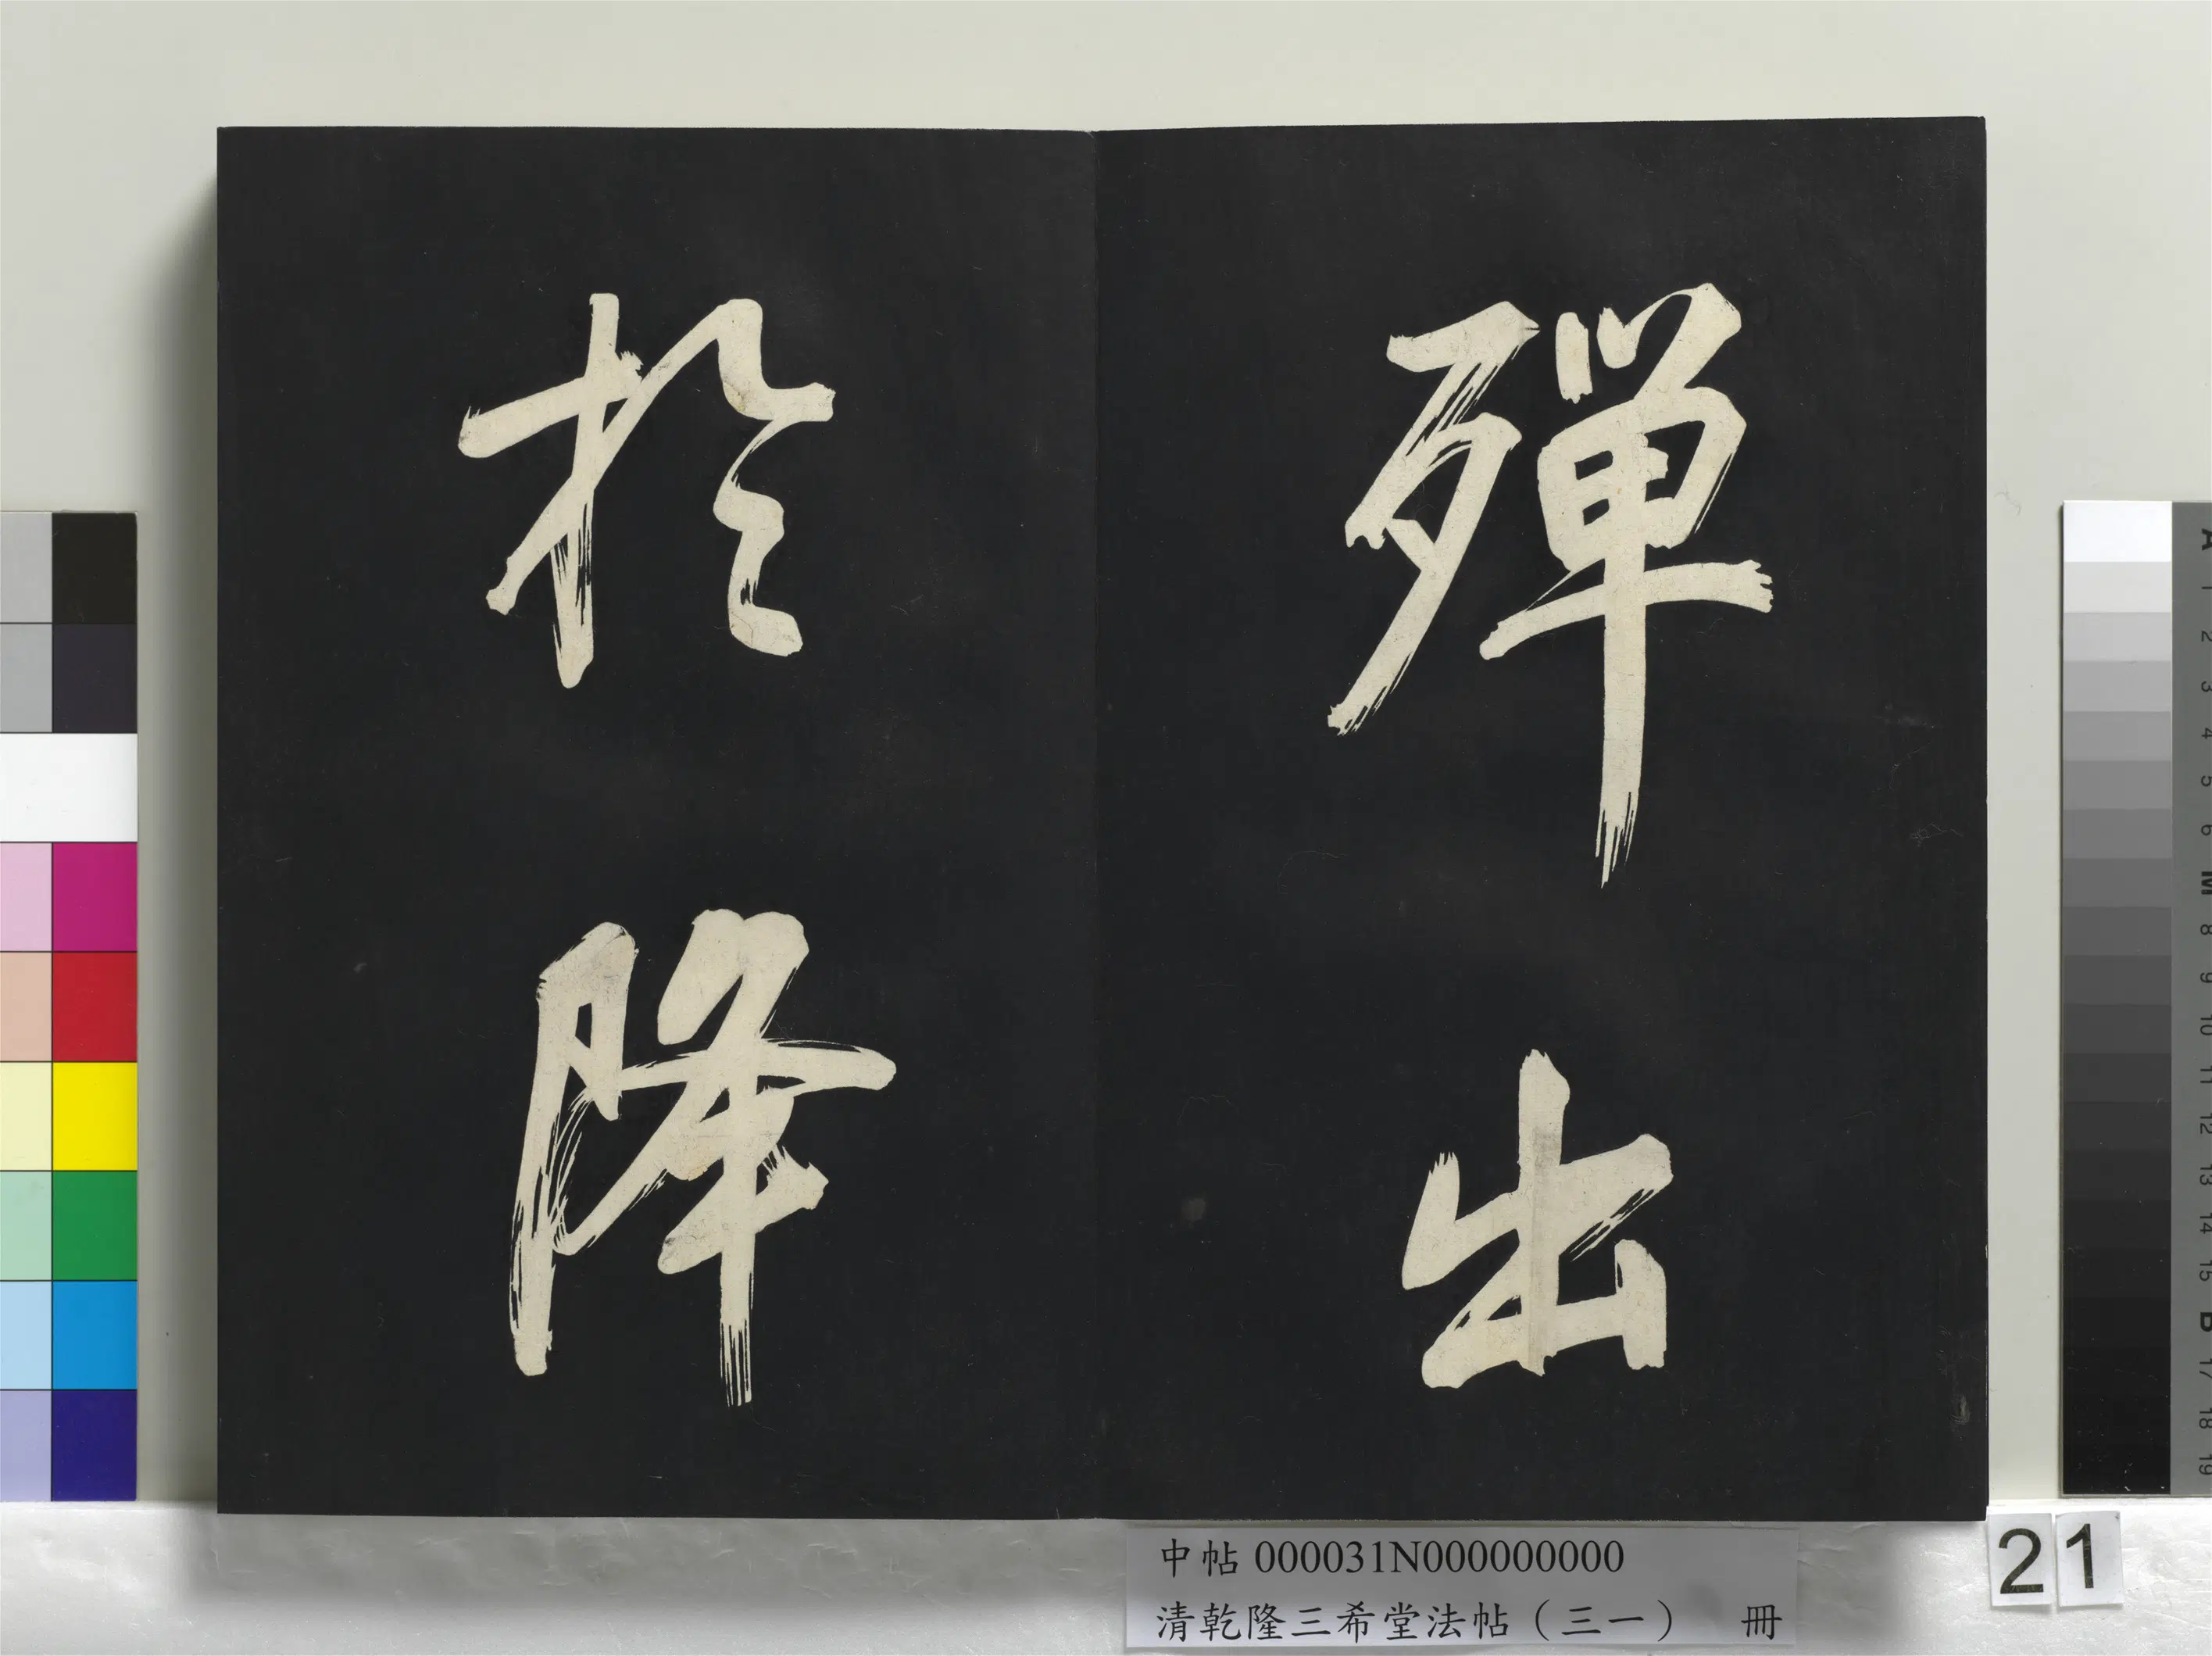 殫出
於降
中帖 000031N000000000
清乾隆三希堂法帖（三一） 冊
21
A
1
2
3
4
5
6
M
8
9
10
11
12
13
14
15
B
17
18
19